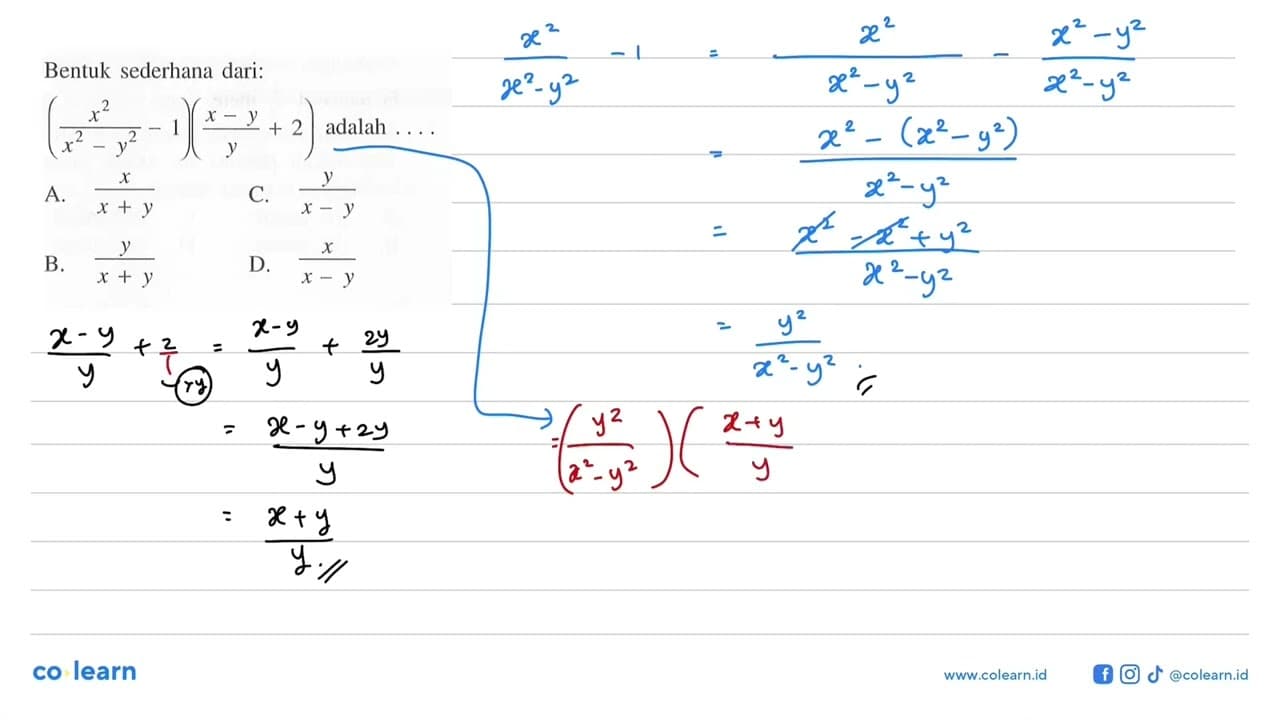 Bentuk sederhana dari:
(x²/(x² - y²) - 1)((x - y)/y + 2) adalah ....
A. x/(x + y) C. y/(x - y)
B. y/(x + y) D. x/(x - y)
x²/(x²-y²) - 1 = x²/(x²-y²) - (x²-y²)/(x²-y²)
= (x² - (x²-y²))/(x²-y²)
= (x² - x² + y²)/(x²-y²)
= y²/(x²-y²)
(x-y)/y + 2/1 = (x-y)/y + 2y/y
xy
= (x-y+2y)/y
= (x+y)/y
= (y²/(x²-y²))((x+y)/y
co learn
www.colearn.id @colearn.id